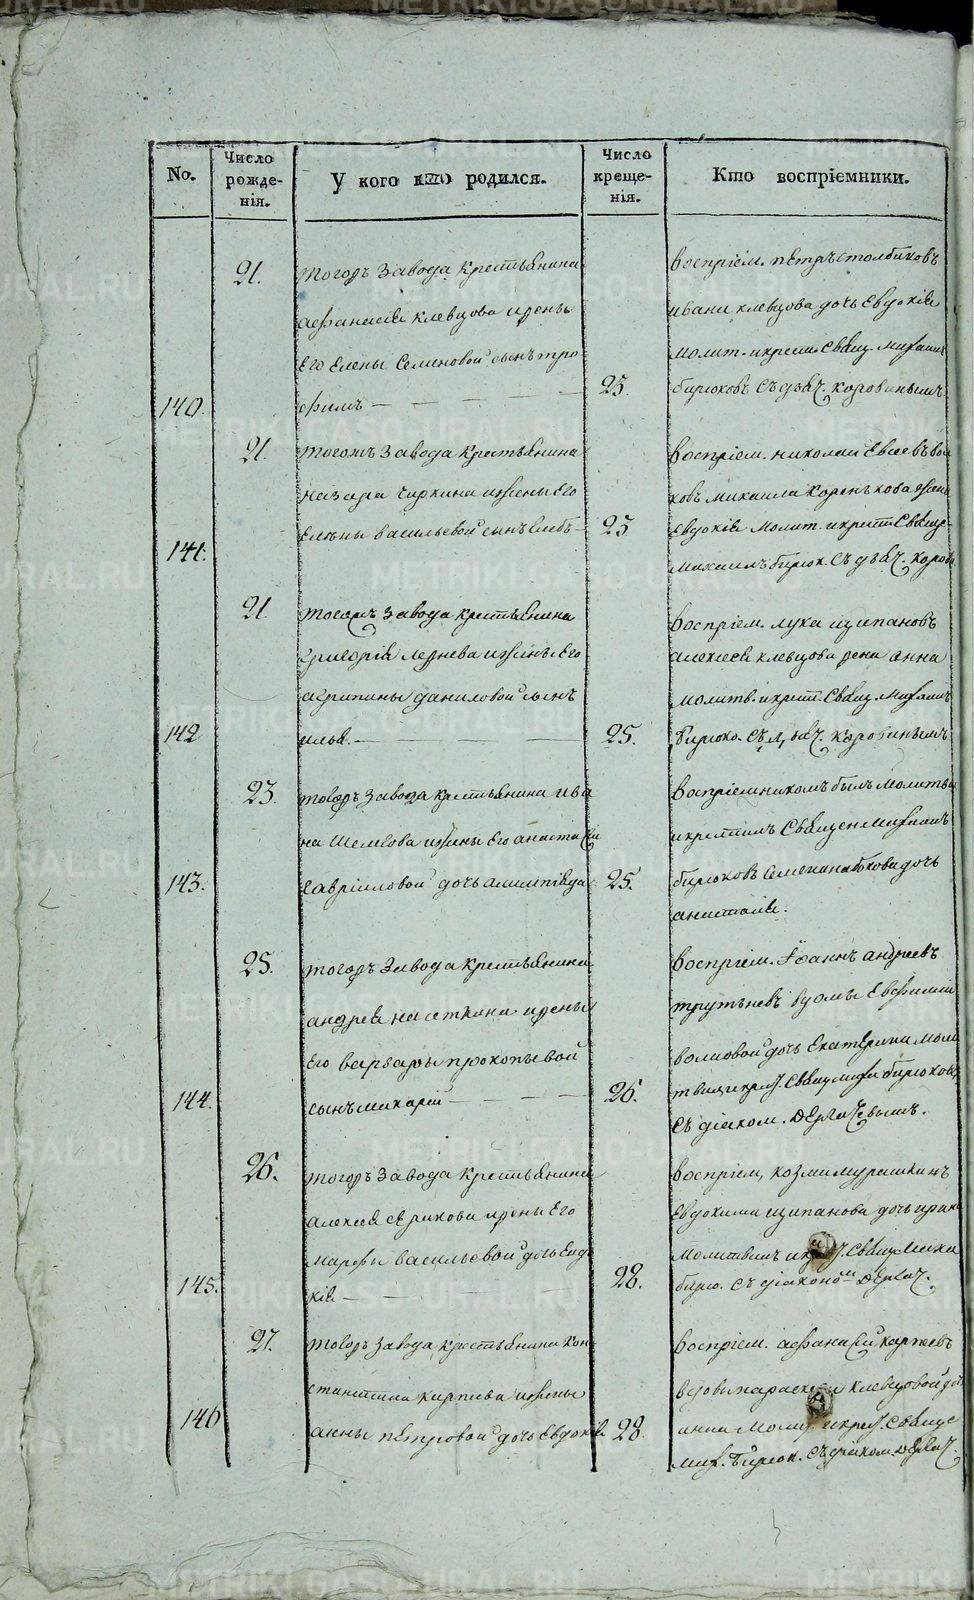 No.
Число рожде-нія.
У кого кто родился.
Число креще-нія.
Кто воспріемники.
140.
21.
тогожъ завода крестьянина
афанасия клевцова и жены
Его Елены Семеновой сынъ тро
фимъ
25.
Воспріем. пЕтръ столбиковъ
ивана клевцова дочь Евдокія
молит. и крест. Свящ. михаил
бирюковъ Съ дьяч. коровинымъ
141.
21.
тогожъ завода крестьянина
назара чиркина и жены Его
Елены васильевой сынъ глебъ
25
Воспріем. николай
михаила жена
Евдокія молит. и крест. Свяще-
михаилъ бирюк. Съ дьяч. коров
142
21.
тогожъ завода крестьянина
григорія и жены Его
агрипины даниловой сынъ
илья.
25.
Воспріем. лука щипановъ
алексея клевцова жена анна
молитв. и крест. Свящ. михаилъ
бирюко. Съ дьяч. коровинымъ
143.
23.
тогожъ завода крестьянина ива
на и жены Его анастасіи
гавриловой дочь
25.
Воспріемникомъ былъ молитв
и крестилъ Священ михаилъ
бирюковъ Семена дочь
анастасія.
144.
25.
тогожъ завода крестьянина
андрея насеткина и жены
Его варвары прокопьевой
сынъ макарій
26.
Воспріем. Іоаннъ андреевъ
вдовы Евфиміи
волковой дочь Екатерина моли
и крест. Свящ. миха бирюковъ
Съ діаком. дЕргачевымъ.
145.
26.
тогожъ завода крестьянина
алексея и жены Его
марфы васильевой дочь Евдо
кія
28.
Воспріем. козма мурашкинъ
Евдокима щипанова дочь
молитвилъ и крест. Свящ миха
бирю. Съ діакономъ дЕргач.
146
27.
тогожъ завода крестьянина кон
стантина карпова и жены
анны пЕтровой дочь Евдокія
28
Воспріем. афанасій
вдовы параскеви клевцовой доч
анна моли и крест. Свяще
мих. бирюк. Съ діаком. дЕргач.
METRIKI.GASO-URAL.RU